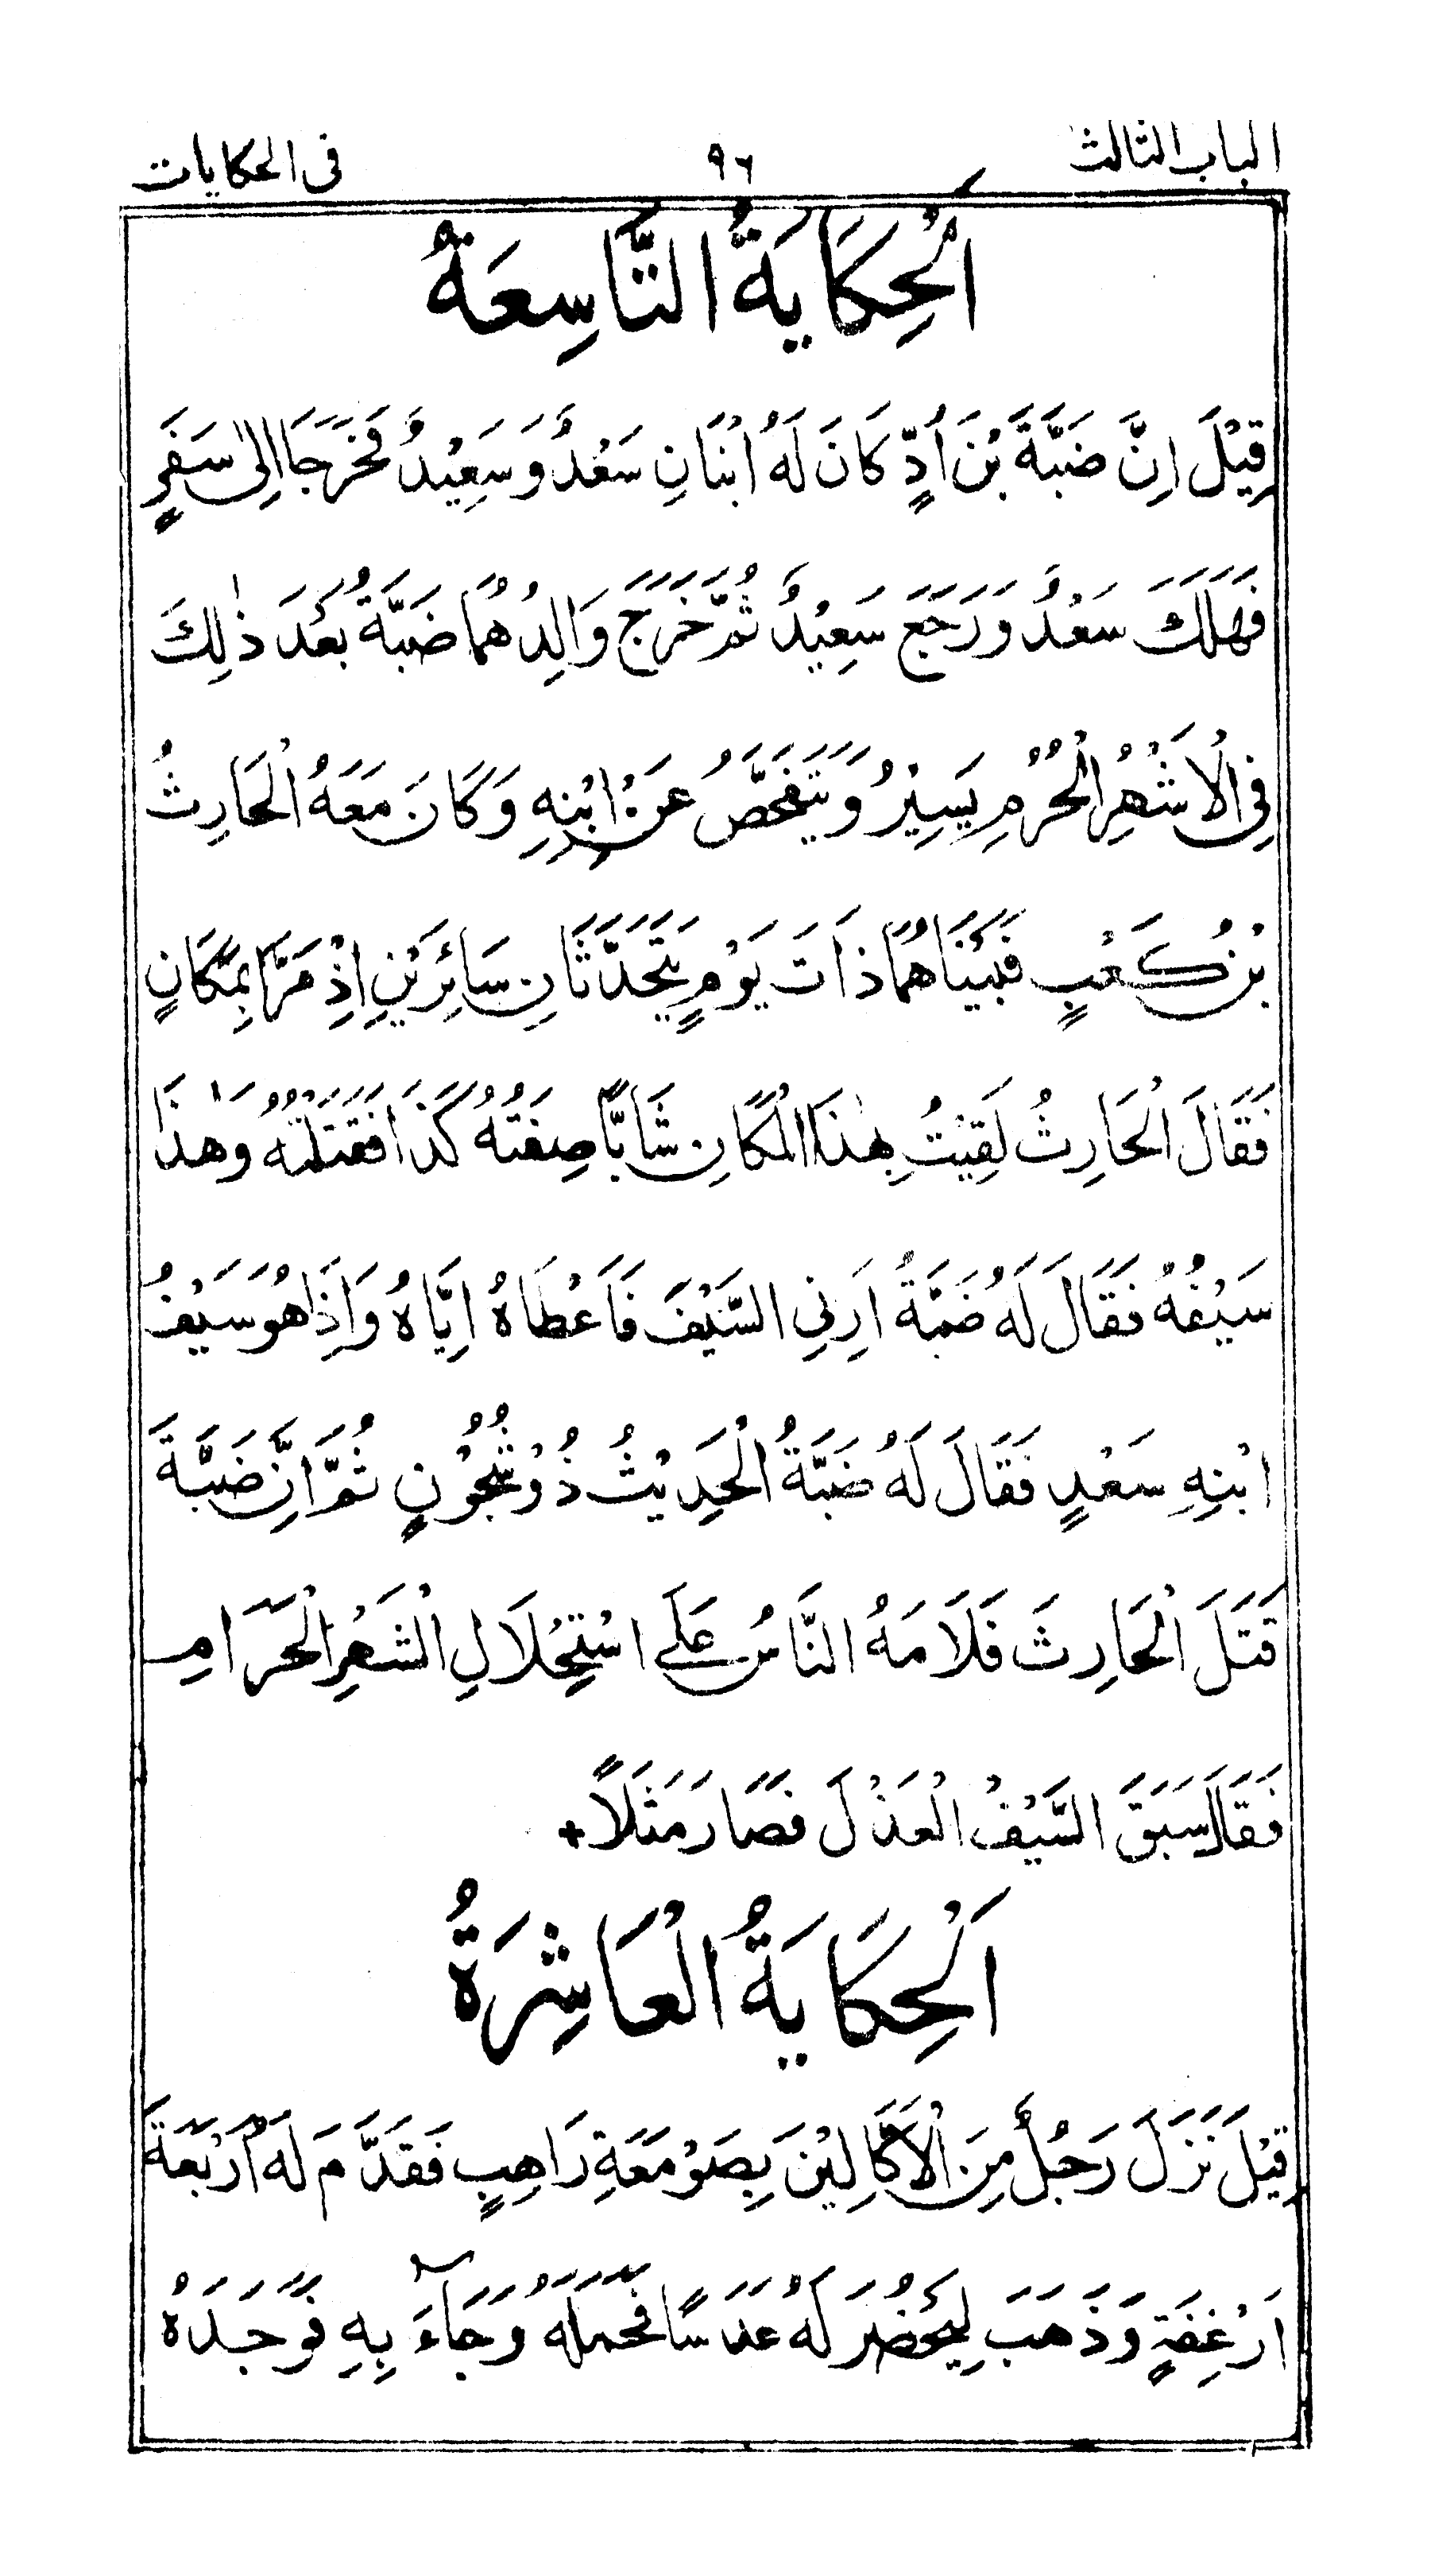 الباب الثالث ٩٦ في الحكايات
اَلْحِكَايَةُ التَّاسِعَةُ
قِيْلَ اِنَّ ضَبَّةَ بْنَ اُدٍّ كَانَ لَهُ ابْنَانِ سَعْدٌ وَسَعِيْدٌ فَخَرَجَا اِلىٰ سَفَرٍ
فَهَلَكَ سَعْدٌ وَرَجَعَ سَعِيْدٌ ثُمَّ خَرَجَ وَالِدُهُمَا ضَبَّةُ بَعْدَ ذٰلِكَ
فِى الْاَشْهُرِ الْحُرُمِ يَسِيْرُ وَيَتَفَحَّصُ عَنْ ابْنِهِ وَكَانَ مَعَهُ الْحَارِثُ
بْنُ كَعْبٍ فَبَيْنَاهُمَا ذَاتَ يَوْمٍ يَتَحَدَّثَانِ سَائِرَيْنِ اِذْ مَرَّا بِمَكَانٍ
فَقَالَ الْحَارِثُ لَقِيْتُ بِهٰذَا الْمَكَانِ شَابًّا صِفَتُهُ كَذَا فَقَتَلْتُهُ وَهٰذَا
سَيْفُهُ فَقَالَ لَهُ ضَبَّةُ اَرِنِي السَّيْفَ فَاَعْطَاهُ اِيَّاهُ وَاِذَا هُوَ سَيْفُ
ابْنِهِ سَعْدٍ فَقَالَ لَهُ ضَبَّةُ الْحَدِيْثُ ذُوْ شُجُوْنٍ ثُمَّ اِنَّ ضَبَّةَ
قَتَلَ الْحَارِثَ فَلَامَهُ النَّاسُ عَلَى اسْتِحْلَالِ الْشَهْرِ الْحَرَامِ
فَقَالَ سَبَقَ السَّيْفُ الْعَذْلَ فَصَارَ مَثَلًا +
اَلْحِكَايَةُ الْعَاشِرَةُ
قِيْلَ نَزَلَ رَجُلٌ مِنَ الْاَكَّالِيْنَ بِصَوْمَعَةِ رَاهِبٍ فَقَدَّمَ لَهُ اَرْبَعَةَ
اَرْغِفَةٍ وَذَهَبَ لِيُحْضِرَ لَهُ عَدَسًا فَحَمَلَهُ وَجَآءَ بِهِ فَوَجَدَهُ